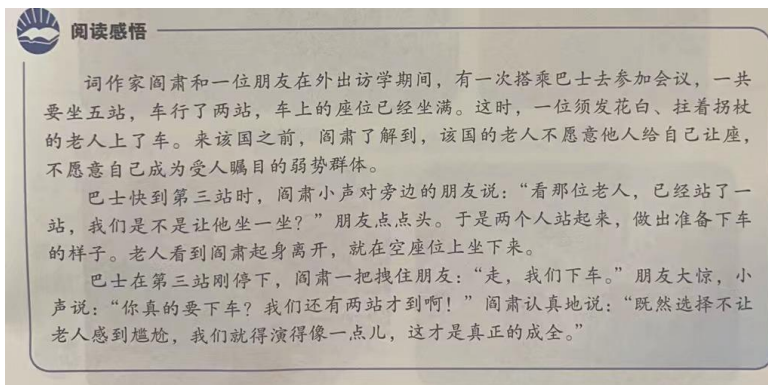 阅读感悟
词作家阎肃和一位朋友在外出访学期间，有一次搭乘巴士去参加会议，一共
要坐五站，车行了两站，车上的座位已经坐满。这时，一位须发花白、拄着拐杖
的老人上了车。来该国之前，阎肃了解到，该国的老人不愿意他人给自己让座，
不愿意自己成为受人瞩目的弱势群体。
巴士快到第三站时，阎肃小声对旁边的朋友说：“看那位老人，已经站了一
站，我们是不是让他坐一坐？”朋友点点头。于是两个人站起来，做出准备下车
的样子。老人看到阎肃起身离开，就在空座位上坐下来。
巴士在第三站刚停下，阎肃一把拽住朋友：“走，我们下车。”朋友大惊，小
声说：“你真的要下车？我们还有两站才到啊！”阎肃认真地说：“既然选择不让
老人感到尴尬，我们就得演得像一点儿，这才是真正的成全。”